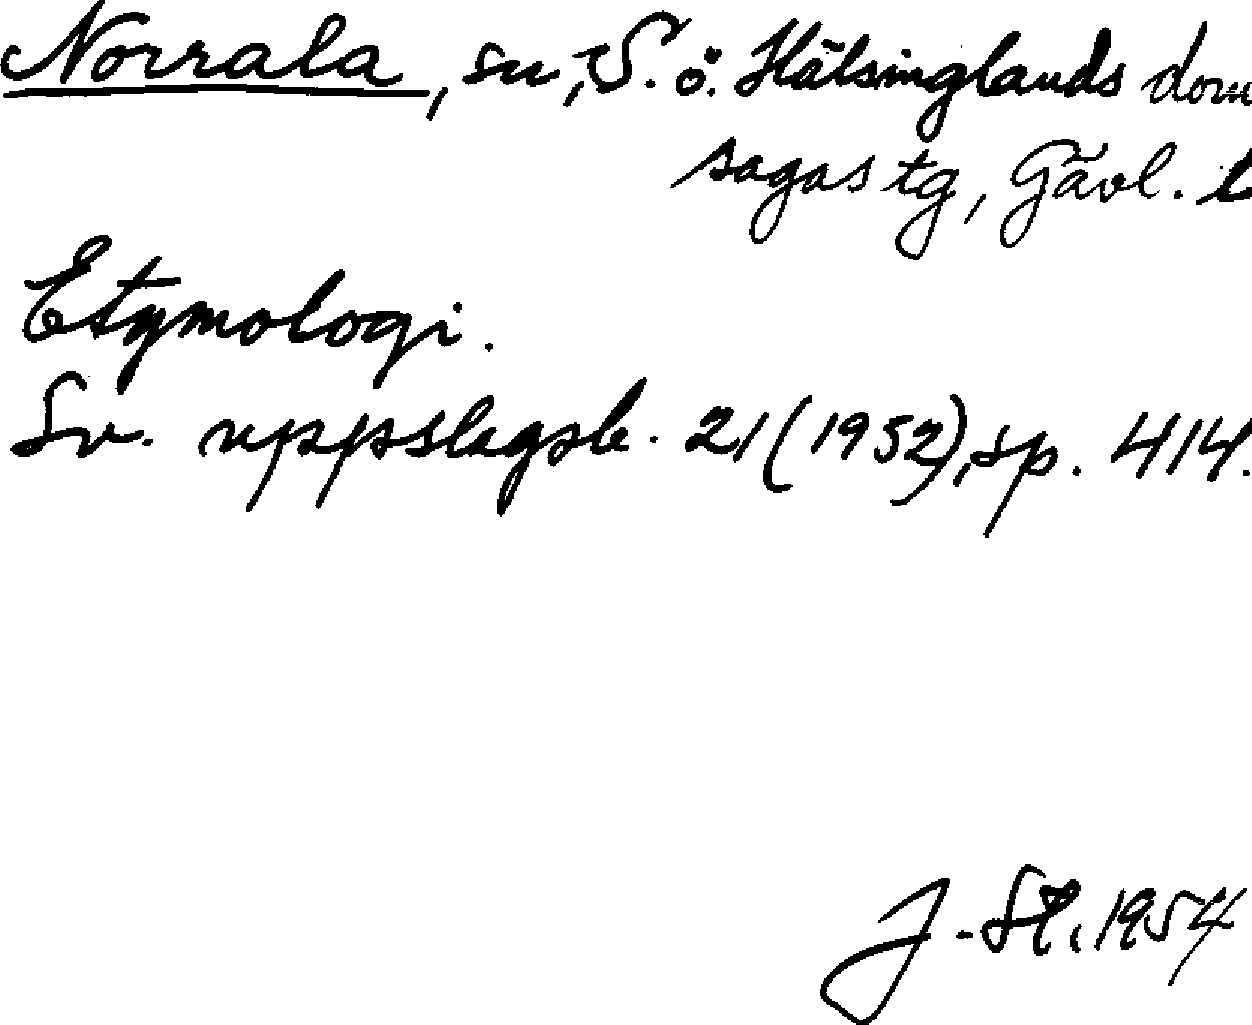 Norrala, sn, S. ö. Hälsinglands dom
sagas tg, Gävl. l
Etymologi.
Sv. uppslagsb. 21 (1952), sp. 414.
J. St. 1954